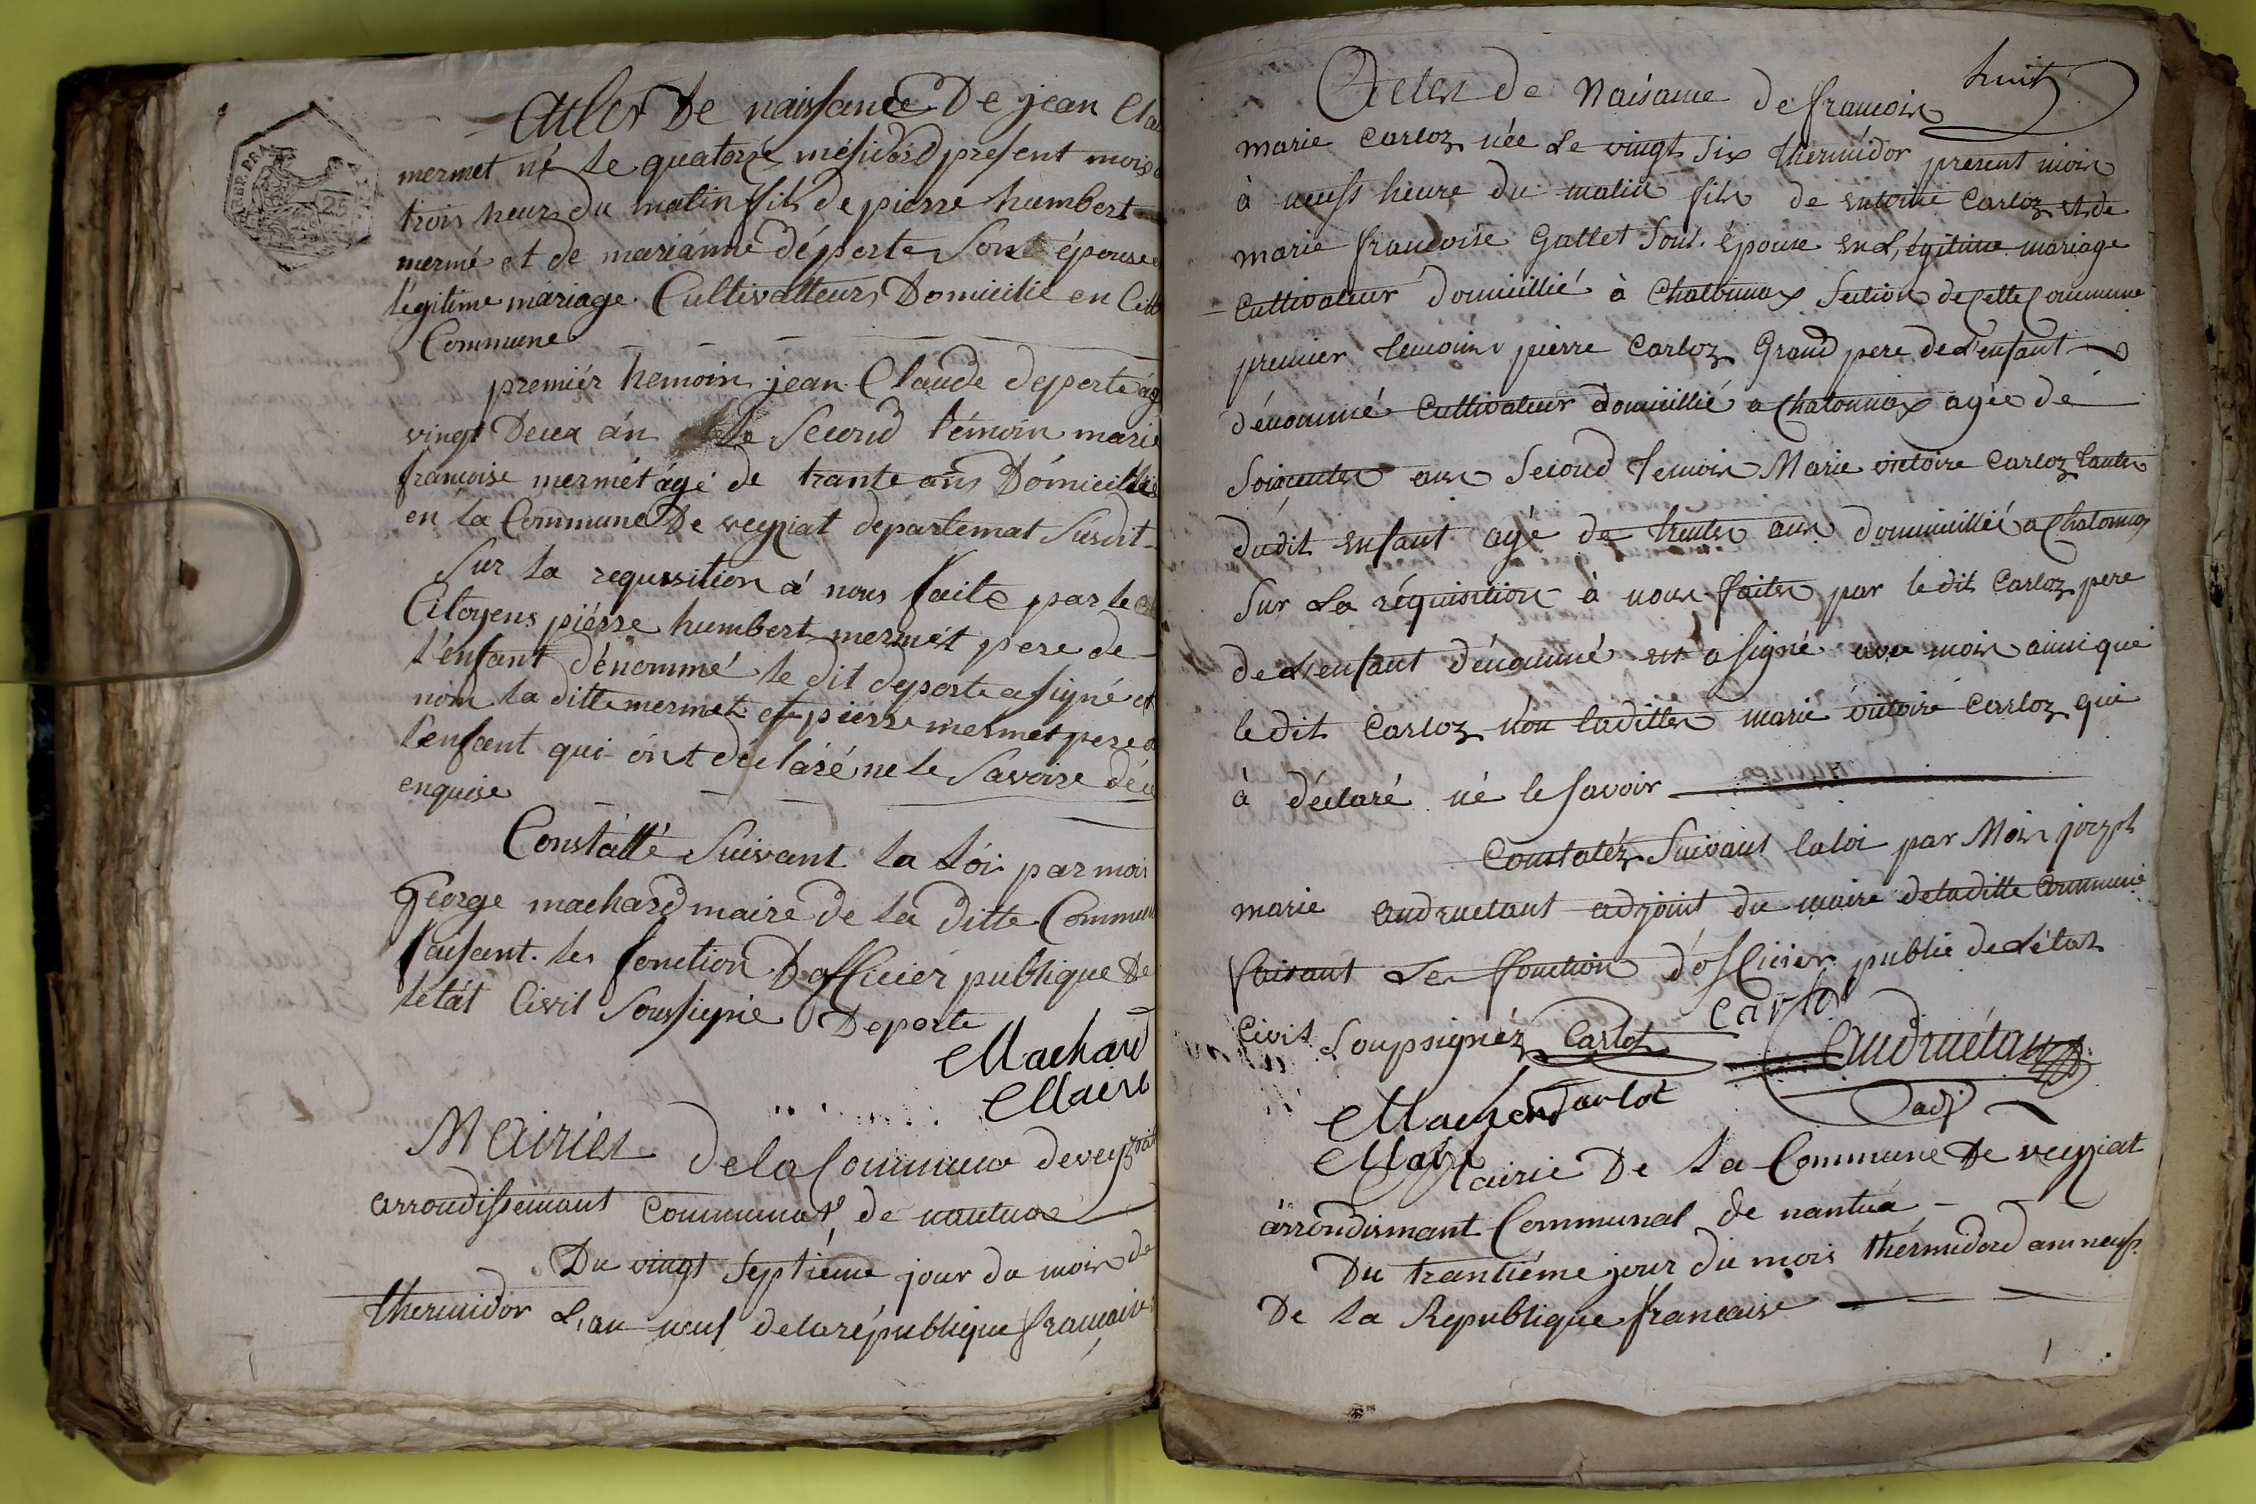 Actes De naissance De jean Cla
mermet né le quatorze mésidord présent mois
trois heurs du matin fils de pierre humbert
mermé et de mariánne déporte Sont épouse
légitime mariage. Cultivatteurs Domicilié en Cette
Commune
premiér temoin jean Claude deporte ág
vingt Deux án Le Second témoin marie
francoise mermét ágé de trante ans Dómicilliés
en la Commune De veyziat départemat Súsdit
Sur la requisition á nous faite par le
Citoyens piérre humbert mermét pere de
l'enfant dénommé le dit deporte a signé et
nón la ditte mermet et pierre mermet pere d
l'enfant qui ónt décláré ne le Savoire déu
enquise
Constátté Suivant la Lói par moi
George machard maire de la ditte Commune
faisant les fonction D officiér publique De
létát Civil Soussigné Deporte
Machard
Maire
Mairies de la Commune de veyziat
arrondissemant Communal de nantua
Du vingt Septiéme jour du mois de
thermidor L,an neuf de la république francaise
huit
Actes de Naisance de francois
marie Carloz née Le vingt Six thermidor present mois
à neuff heure du matin fils de entoine Carloz et de
marie francoise Gallet Sont épouse en L,égitime mariage
Cultivateur domicillié à Chatonnax Section de Cette Commune
premier temoins pierre Carloz Grand pere de L'enfant
dénommé Cultivateur domicillié a Chatonnax agée dé
Soixentes ans Second temoin Marie victoire Carloz tante
dúdit enfant agé de trentes ans domicillié a Chatonnax
Sur La réquisition à nous faites par le dit Carloz pere
de L'enfant dénommé et a signé avec mois ainsi que
le dit Carloz nón laditte marie victoire Carloz qui
à déclaré né le savoir
Constatéz Suivant la loi par Mois jozeph
marie andruetant adjoint du maire de la ditte Commune
faisant Les fonction d'officier public de L'étas
Civil Soupsignéz Carlot Carlo
Andruétan
Machard Carlot adj
Maire
Mairie De la Commune De veyziat
àrrondismant Communal de nantua
Du trantiéme jour du mois thérmidord an neuf
De la Republique francaise